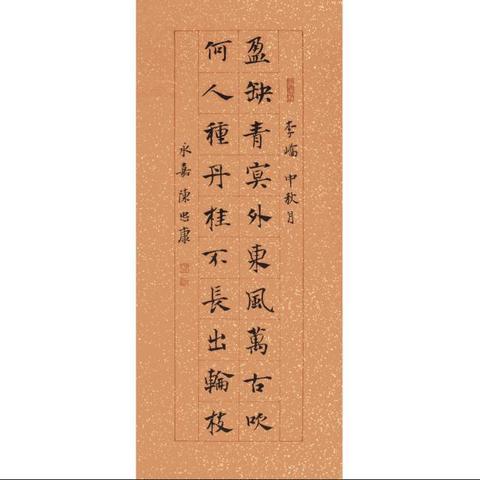 李嶠 中秋月
盈缺青冥外東風萬古吹
何人種丹桂不長出輪枝
永嘉 陳忠康